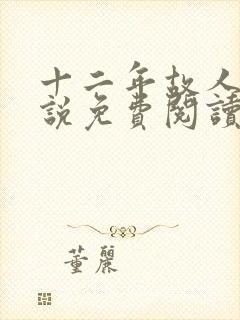 十二年故人
説免費閱讀
董麗